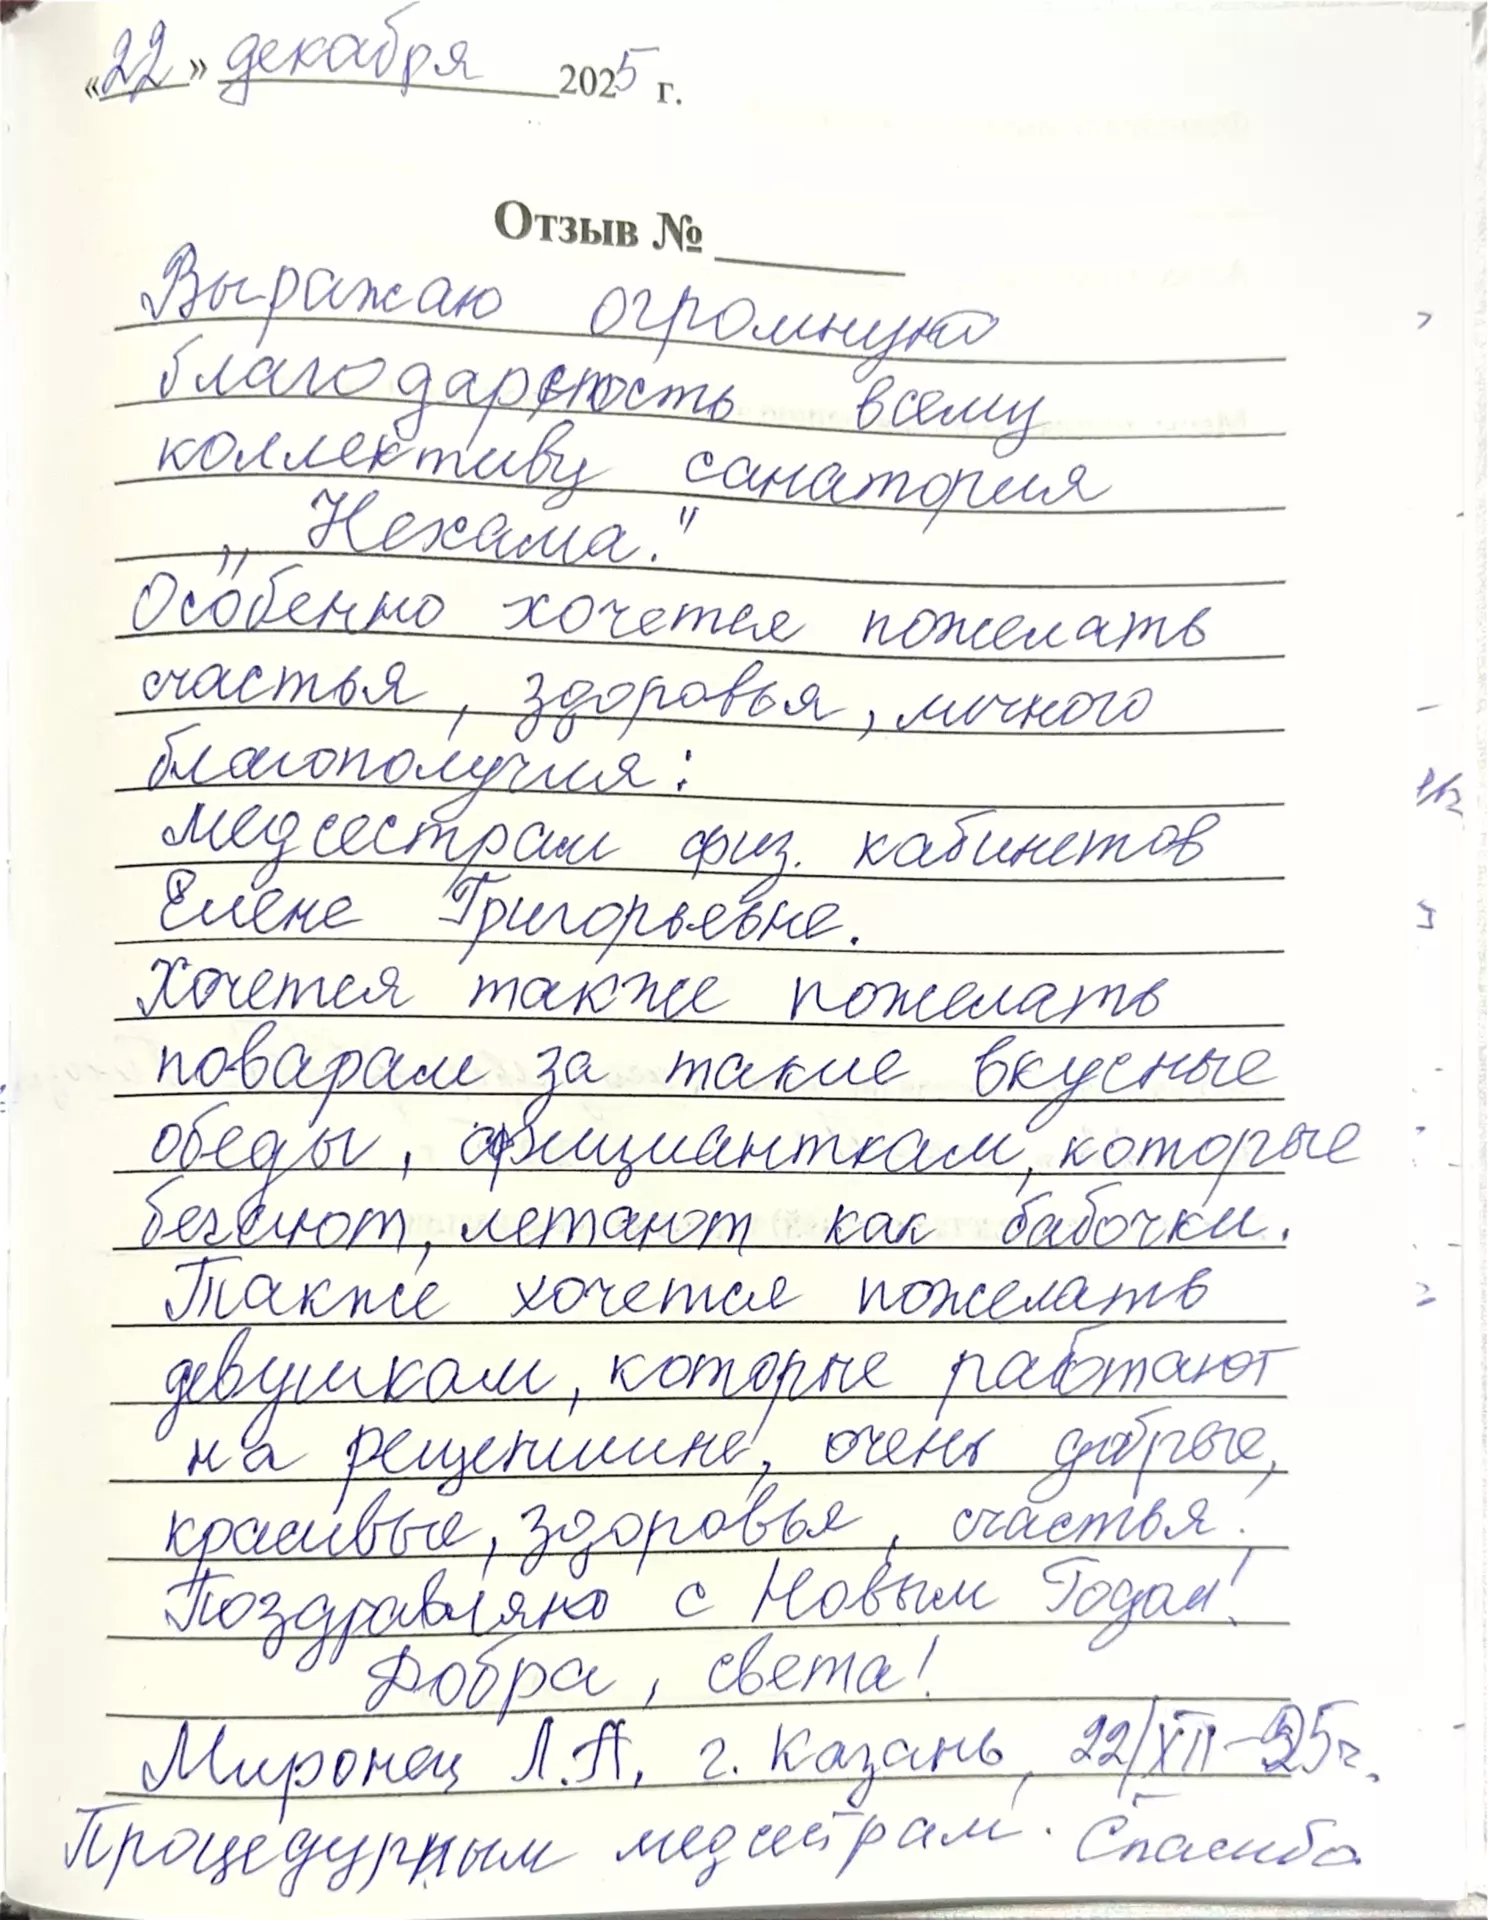 «22» декабря 2025 г.
Отзыв №
Выражаю огромную
благодарность всему
коллективу санатория
„Нехама."
Особенно хочется пожелать
счастья, здоровья, личного
благополучия:
медсестрам физ. кабинетов
Елене Григорьевне.
Хочется также пожелать
поварам за такие вкусные
обеды, официанткам, которые
бегают, летают как бабочки.
Также хочется пожелать
девушкам, которые работают
на рецепшине, очень добрые,
красивые, здоровья, счастья.
Поздравляю с Новым Годом!
Добра, света!
Миронец Л.А. г. Казань, 22/XII-25г.
Процедурным медсестрам. Спасибо